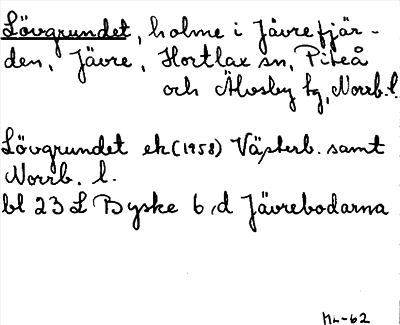 Lövgrundet, holme i Jävrefjär-
den, Jävre, Hortlax sn, Piteå
och Älvsby tg, Norrb. l.
Lövgrundet ek (1958) Västerb. samt
Norrb. l.
bl 23 L Byske 6, d Jävrebodarna
-62